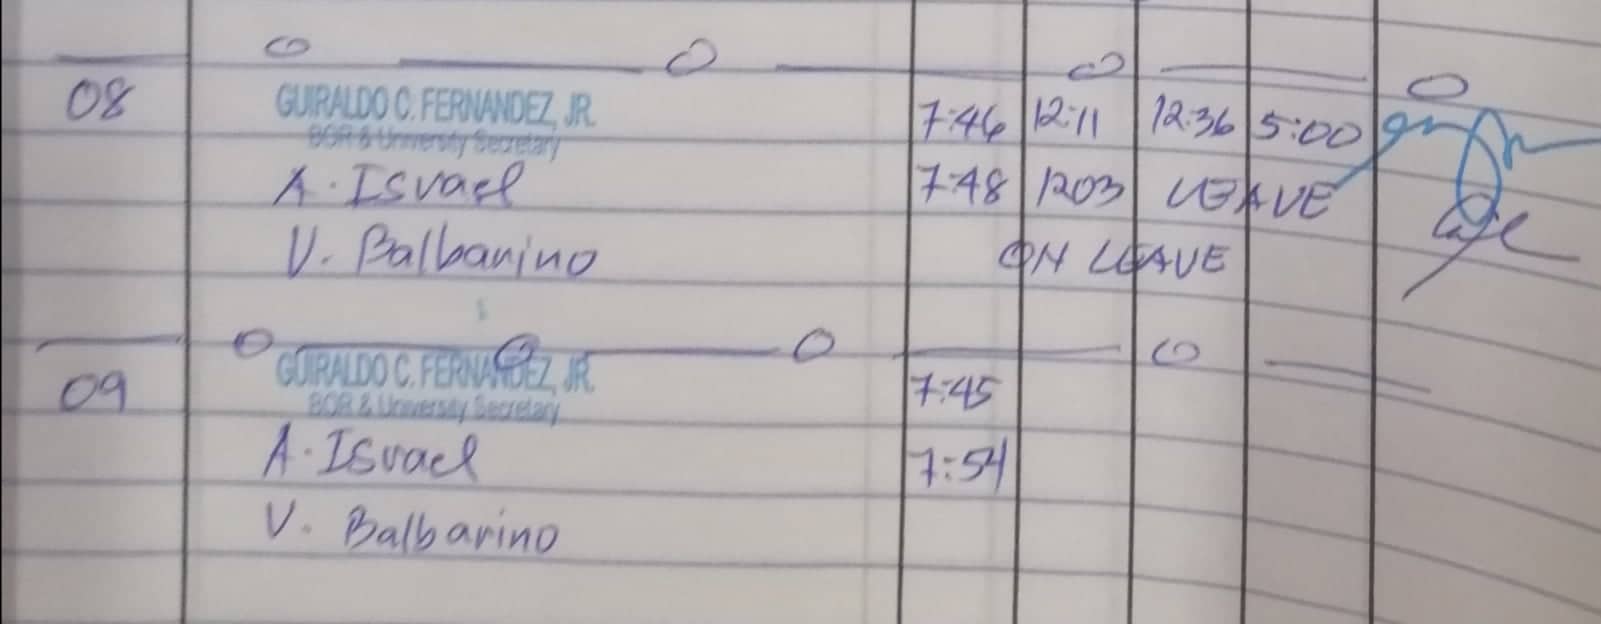 08 GUIRALDO C. FERNANDEZ, JR. 7:46 12:11 12:36 5:00
BOR & University Secretary
A. Israel 7:48 1203 LEAVE
V. Balbarino ON LEAVE
09 GUIRALDO C. FERNANDEZ, JR. 7:45
BOR & University Secretary
A. Israel 7:54
V. Balbarino